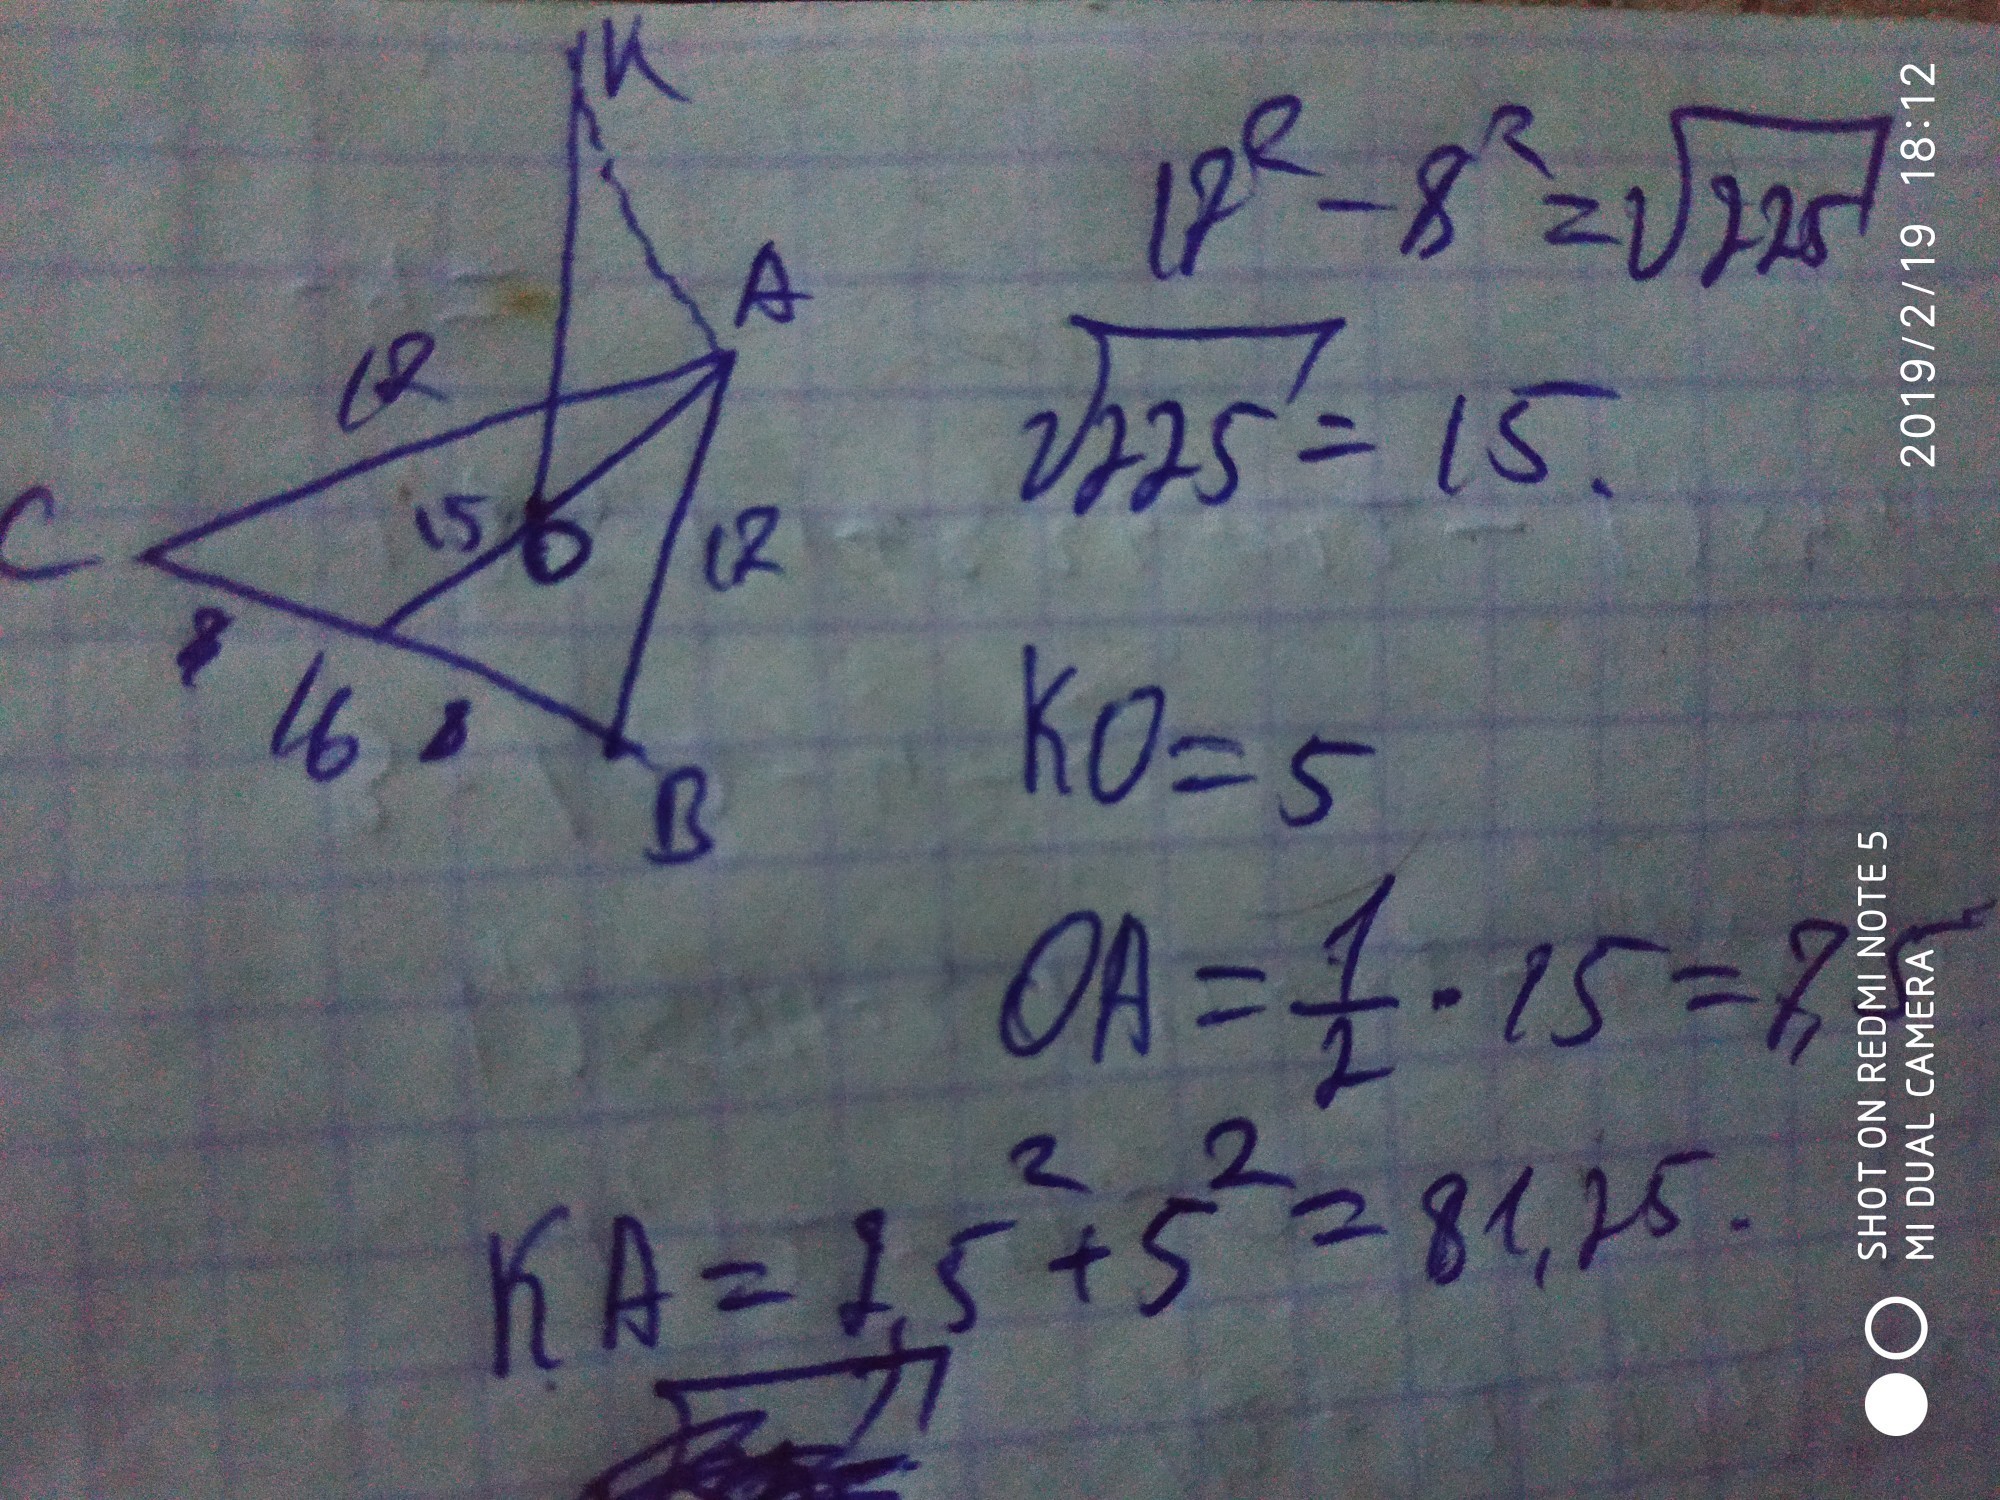 K
A
17
C
15
O
17
8
16
8
B
17² - 8² = √225
√225 = 15.
KO = 5
OA = 1/2 · 15 = 7,5
KA = 7,5² + 5² = 81,25.
2019/2/19 18:12
SHOT ON REDMI NOTE 5
MI DUAL CAMERA